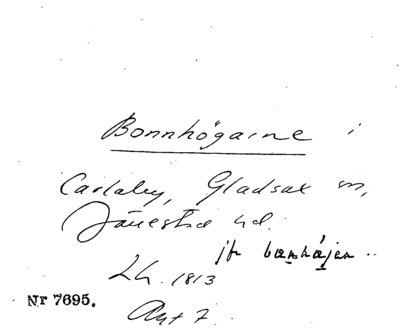 Bonnhögarne i
Carlaby, Gladsax sn,
Järrestad hd.
jfr bœnhǻjen ..
Lh. 1813
Nr 7695.
Akt 7.